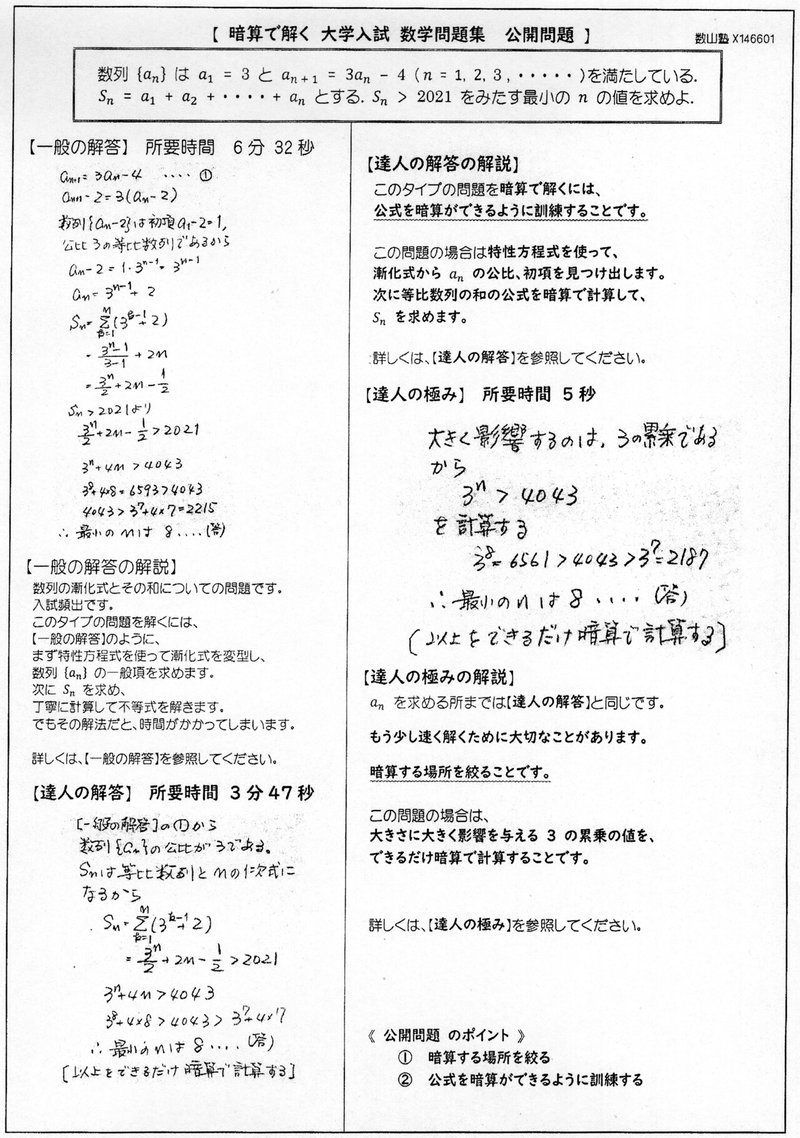 【 暗算で解く 大学入試 数学問題集 公開問題 】
数山塾 X146601
数列 {aₙ} は a₁ = 3 と aₙ₊₁ = 3aₙ − 4 ( n = 1, 2, 3 , ･････ )を満たしている.
Sₙ = a₁ + a₂ + ････ + aₙ とする. Sₙ > 2021 をみたす最小の n の値を求めよ.
【一般の解答】 所要時間 6 分 32 秒
aₙ₊₁ = 3aₙ − 4 ‥‥ ①
aₙ₊₁ − 2 = 3(aₙ − 2)
数列{aₙ−2}は初項a₁−2=1,
公比 3の等比数列であるから
aₙ − 2 = 1・3ⁿ⁻¹ = 3ⁿ⁻¹
aₙ = 3ⁿ⁻¹ + 2
Sₙ = Σ[k=1→n](3ᵏ⁻¹ + 2)
= (3ⁿ−1)/(3−1) + 2n
= 3ⁿ/2 + 2n − 1/2
Sₙ > 2021より
3ⁿ/2 + 2n − 1/2 > 2021
3ⁿ + 4n > 4043
3⁸+4×8 = 6593 > 4043
4043 > 3⁷+4×7 = 2215
∴ 最小のnは 8 ‥‥(答)
【一般の解答の解説】
数列の漸化式とその和についての問題です。
入試頻出です。
このタイプの問題を解くには、
【一般の解答】のように、
まず特性方程式を使って漸化式を変型し、
数列 {aₙ} の一般項を求めます。
次に Sₙ を求め、
丁寧に計算して不等式を解きます。
でもその解法だと、時間がかかってしまいます。
詳しくは、【一般の解答】を参照してください。
【達人の解答】 所要時間 3 分 47 秒
[一般の解答]の①から
数列{aₙ}の公比が3である。
Sₙは等比数列とnの1次式に
なるから
Sₙ = Σ[k=1→n](3ᵏ⁻¹ + 2)
= 3ⁿ/2 + 2n − 1/2 > 2021
3ⁿ + 4n > 4043
3⁸+4×8 > 4043 > 3⁷+4×7
∴ 最小のnは 8 ‥‥(答)
[以上をできるだけ暗算で計算する]
【達人の解答の解説】
このタイプの問題を暗算で解くには、
公式を暗算ができるように訓練することです。
この問題の場合は特性方程式を使って、
漸化式から aₙ の公比、初項を見つけ出します。
次に等比数列の和の公式を暗算で計算して、
Sₙ を求めます。
詳しくは、【達人の解答】を参照してください。
【達人の極み】 所要時間 5 秒
大きく影響するのは, 3の累乗である
から
3ⁿ > 4043
を計算する
3⁸ = 6561 > 4043 > 3⁷ = 2187
∴ 最小のnは 8 ‥‥(答)
[以上をできるだけ暗算で計算する]
【達人の極みの解説】
aₙ を求める所までは【達人の解答】と同じです。
もう少し速く解くために大切なことがあります。
暗算する場所を絞ることです。
この問題の場合は、
大きさに大きく影響を与える 3 の累乗の値を、
できるだけ暗算で計算することです。
詳しくは、【達人の極み】を参照してください。
《 公開問題 のポイント 》
① 暗算する場所を絞る
② 公式を暗算ができるように訓練する